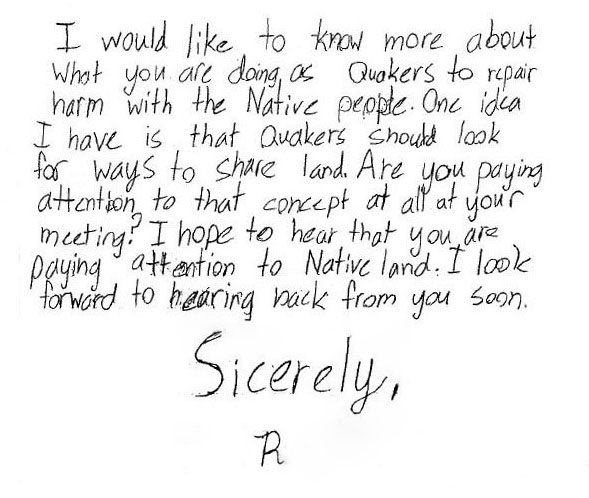 I would like to know more about
What you are doing, as Quakers to repair
harm with the Native people. One idea
I have is that Quakers should look
for ways to share land. Are you paying
attention to that concept at all at your
meeting? I hope to hear that you are
paying attention to Native land. I look
forward to hearing back from you soon.
Sicerely,
R